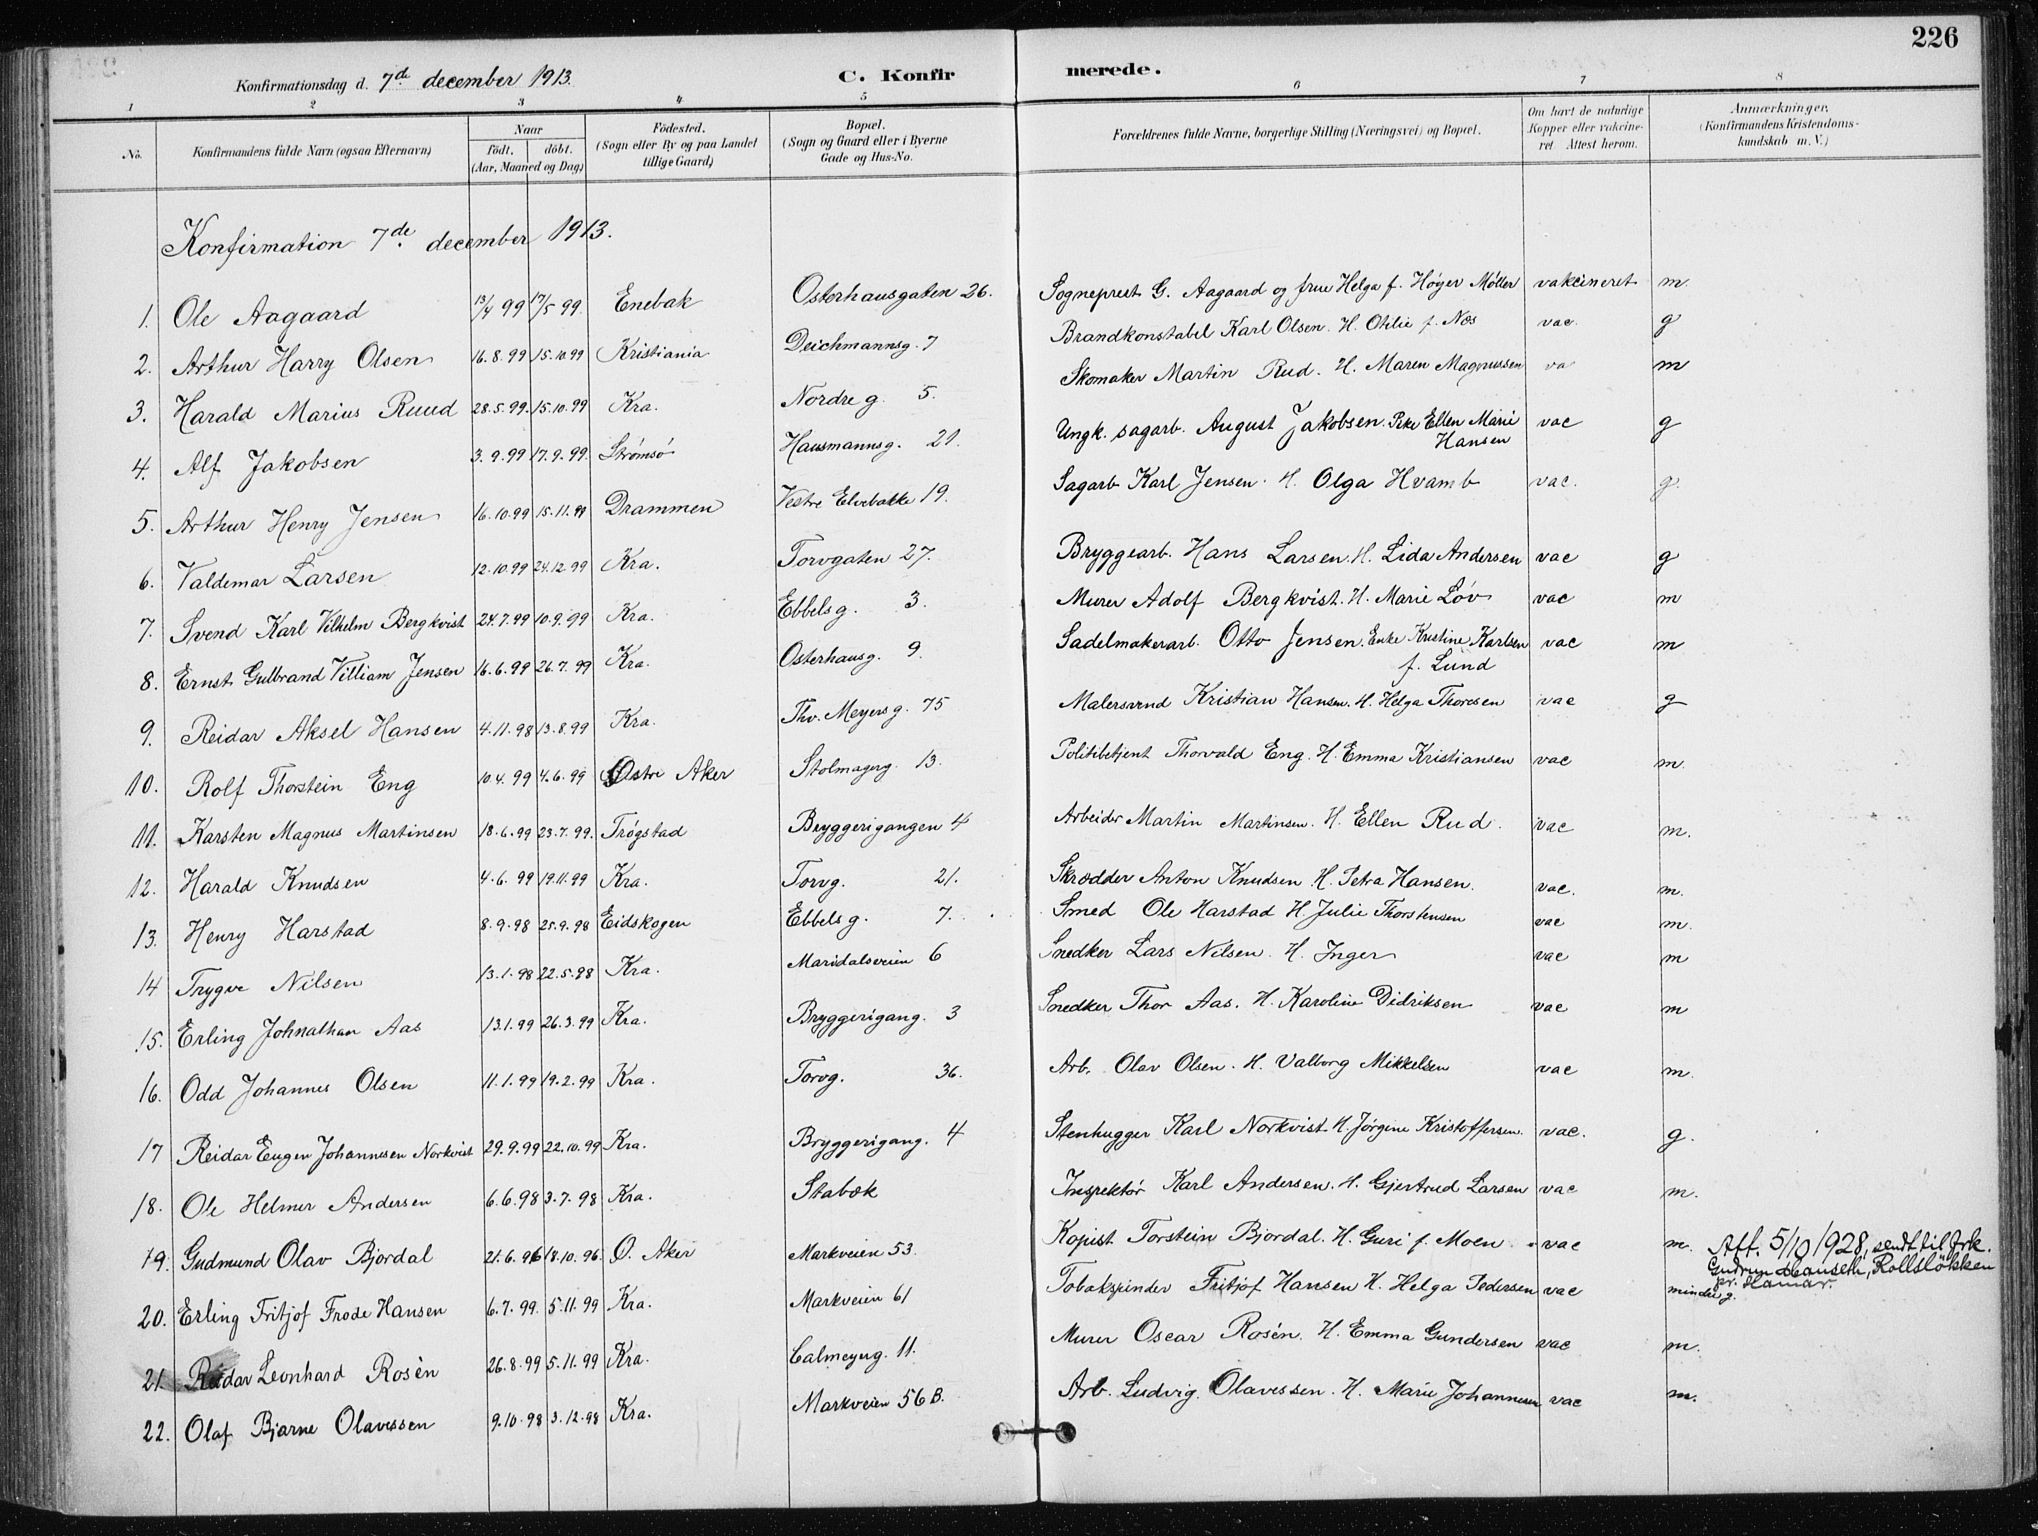 226
Konfirmationsdag d. 7de december 1913.
C. Konfirmerede.
1 2 3 4 5 6 7 8
No. Konfirmandens fulde Navn (ogsaa Efternavn) Naar født. døbt. (Aar, Maaned og Dag) Fødested. (Sogn eller By og paa Landet tillige Gaard) Bopæl. (Sogn og Gaard eller i Byerne Gade og Hus-No. Forældrenes fulde Navne, borgerlige Stilling (Næringsvei) og Bopæl. Om havt de naturlige Kopper eller vakcineret. Attest herom. Anmærkninger. (Konfirmandens Kristendomskundskab m. V.)
Konfirmation 7de december 1913.
1. Ole Aagaard 13/4 99 17/5 99 Enebak Osterhausgaten 26. Sogneprest G. Aagaard og frue Helga f. Høyer Møller vakcineret m.
2. Arthur Harry Olsen 16.8.99 15.10.99 Kristiania Deichmannsg. 7 Brandkonstabel Karl Olsen. H. Otilie f. Næs vac. g
3. Harald Marius Ruud 28.5.99. 15.10.99 Kra. Nordre g. 5. Skomaker Martin Rud. H. Maren Magnussen va m
4. Alf Jakobsen 3.9.99 17.9.99. Strømsø Hausmannsg. 21. Ungk. sagarb. August Jakobsen. Pike Ellen Marie Hansen vac g
5. Arthur Henry Jensen 16.10.99 15.11.99 Drammen Vestre Elvebakke 19. Sagarb Karl Jensen. H. Olga Hvamb vac. g.
6. Valdemar Larsen 12.10.99 24.12.99 Kra. Torvgaten 27. Bryggearb. Hans Larsen. H. Lida Andersen vac g
7. Svend Karl Vilhelm Bergkvist 24.7.99 10.9.99 Kra. Ebbelsg. 3. Murer Adolf Bergkvist. H. Marie Løv vac m
8. Ernst Gulbrand Villiam Jensen 16.6.99 26.7.99 Kra. Osterhausg. 9. Sadelmakerarb. Otto Jensen. Enke Kristine Karlsen f. Lund vac m
9. Reidar Aksel Hansen 4.11.98 13.8.99 Kra. Thv. Meyersg. 75 Malersvend Kristian Hansen. H. Helga Thoresen vac g
10. Rolf Thorstein Eng 10.4.99 4.6.99 Østre Aker Stolmagerg. 13. Politibetjent Thorvald Eng. H. Emma Kristiansen vac m.
11. Karsten Magnus Martinsen 18.6.99 23.7.99. Trøgstad Bryggerigangen 4 Arbeider Martin Martinsen. H. Ellen Rud. vac m.
12. Harald Knudsen 4.6.99 19.11.99 Kra. Torvg. 21. Skrædder Anton Knudsen H. Petra Hansen. vac. m.
13. Henry Harstad 8.9.98 25.9.98 Eidskogen Ebbelsg. 7. Smed Ole Harstad H. Julie Thorstensen vac m.
14 Trygve Nilsen 13.1.98 22.5.98 Kra. Maridalsveien 6 Snedker Lars Nilsen. H. Inger vac m
15. Erling Johnathan Aas 13.1.99 26.3.99 Kra. Bryggerigang. 3 Snedker Thor Aas. H. Karoline Didriksen vac m
16. Odd Johannes Olsen 11.1.99 19.2.99 Kra. Torvg. 36. Arb. Olav Olsen. H. Valborg Mikkelsen vac m.
17 Reidar Eugen Johannesen Norkvist 29.9.99 22.10.99 Kra. Bryggerigang. 4 Stenhugger Karl Norkvist. H. Jørgine Kristoffersen. vac. g.
18. Ole Helmer Andersen 6.6.98 3.7.98 Kra. Stabæk Inspektør Karl Andersen. H. Gjertrud Larsen vac m.
19. Gudmund Olav Bjordal 21.6.96 18.10.96. Ø. Aker Markveien 53. Kopist Torstein Bjordal. H. Guri f. Moen vac m. Att. 5/10 1928, sendt til frk. Gudrun Hauseth, Rollsløkken pr. Hamar.
20. Erling Fritjof Frode Hansen 6.7.99. 5.11.99 Kra. Markveien 61 Tobakspinder Fritjof Hansen H. Helga Pedersen vac mindre g.
21. Reidar Leonhard Rosèn 26.8.99 5.11.99 Kra. Calmeyerg. 11. Murer Oscar Rosén. H. Emma Gundersen vac m.
22. Olaf Bjarne Olavessen 9.10.98 3.12.98 Kra. Markveien 56 B. Arb. Ludvig Olavessen. H. Marie Johannesen vac m.